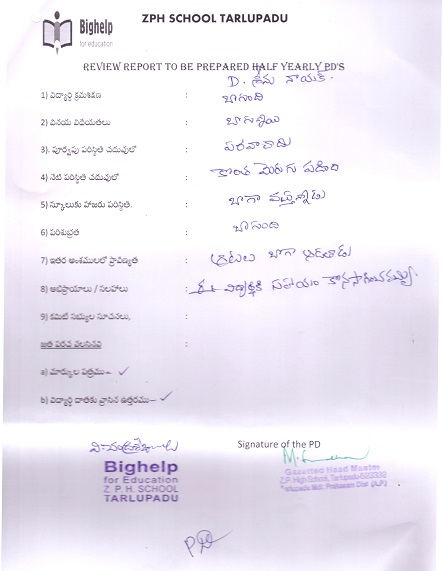 Bighelp
for education
ZPH SCHOOL TARLUPADU
REVIEW REPORT TO BE PREPARED HALF YEARLY PD'S
D. భీమ నాయక్.
1) విద్యార్థి క్రమశిక్షణ : బాగుంది
2) వినయ విధేయతలు : బాగున్నాయి
3). పూర్వపు పరిస్థితి చదువులో : పరవాలేదు
4) నేటి పరిస్థితి చదువులో : కొంత మెరుగు పడింది
5) స్కూలుకు హాజరు పరిస్థితి. : బాగా వస్తున్నాడు
6) పరిశుభ్రత : బాగుంది
7) ఇతర అంశములలో ప్రావీణ్యత : ఆటలు బాగా ఆడుతాడు
8) అభిప్రాయాలు / సలహాలు : ఈ విద్యార్థికి సహాయం కొనసాగించవచ్చు.
9) కమిటీ సభ్యుల సూచనలు, :
జత పరచ వలసినవి
a) మార్కుల పత్రము– ✓
b) విద్యార్థి దాతకు వ్రాసిన ఉత్తరము– ✓
Signature of the PD
Bighelp
for Education
Z. P. H. SCHOOL
TARLUPADU
Gazetted Head Master
Z.P. High School, Tarlupadu-523332
Tarlupadu Mdl. Prakasam Dist (A.P.)